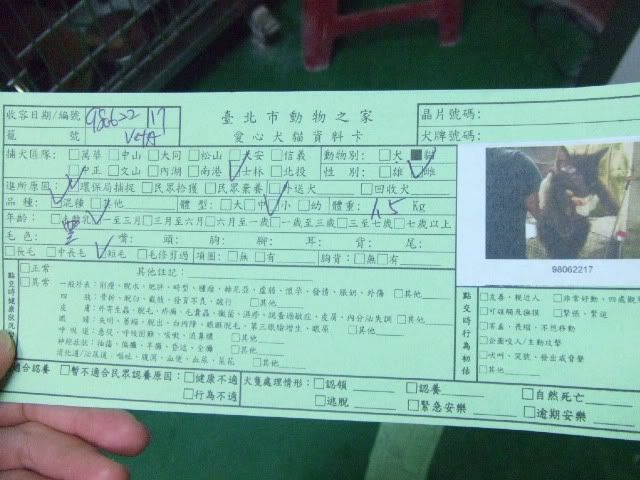 臺北市動物之家
愛心犬貓資料卡
收容日期/編號 980622 17
籠 號
晶片號碼:
犬牌號碼:
捕犬區隊: □萬華 □中山 □大同 □松山 □大安 □信義 動物別: □犬 ■貓
□中正 □文山 □內湖 □南港 □士林 □北投 性 別: □雄 □雌
進所原因: □環保局捕捉 □民眾拾獲 □民眾棄養 □外送犬 □回收犬
品 種: □混種 □其他 體 型: □大 □中 □小 □幼 體重: 1.5 Kg
年齡: 離乳 □一至三月 □三月至六月 □六月至一歲 □一歲至三歲 □三至七歲 □七歲以上
毛 色: 黑 嘴: 頭: 胸: 腳: 耳: 背: 尾:
□長毛 □中長毛 □短毛 □毛修剪過 項圈: □無 □有 胸背: □無 □有
98062217
點交時健康狀況
□正常
□異常
其他註記:
一般外表: 削瘦、脫水、肥胖、畸型、腫瘤、虛弱、懷孕、發情、脹奶、外傷 □其他
四 肢: 骨折、脫臼、截肢、發育不良、跛行 □其他
皮 膚: 外寄生蟲、脫毛、疥癬、毛囊蟲、黴菌、濕疹、跳蚤過敏症、皮屑、內分泌失調 □其他
眼 睛: 失明、萎縮、脫出、白內障、眼瞼脫毛、第三眼瞼增生、眼屎 □其他
呼吸道: 急促、呼吸困難、咳嗽、流鼻膿 □其他
神經症狀: 抽搐、偏癱、半癱、昏迷、全癱 □其他
消化道/泌尿道: 嘔吐、腹瀉、血便、血尿、尿石 □其他
點交時行為初估
□友善、親近人 □非常好動、四處觀
□可碰觸無撫摸 □緊張、緊迫
□害羞、畏縮、不想移動
□企圖咬人/主動攻擊
□吠叫、哭號、發出威脅聲
□其他
適合認養 □暫不適合民眾認養原因: □健康不適
□行為不適
犬隻處理情形: □認領 □認養 □自然死亡
□逃脫 □緊急安樂 □逾期安樂